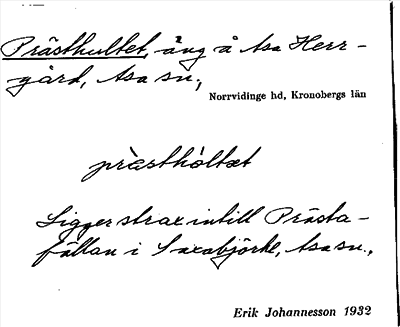 Prästhultet, äng å Asa Herr-
gård, Asa sn.,
Norrvidinge hd, Kronobergs län
prὲsthὸltət
Ligger strax intill Prästa-
fällan i Saxabjörke, Asa sn.,
Erik Johannesson 1932